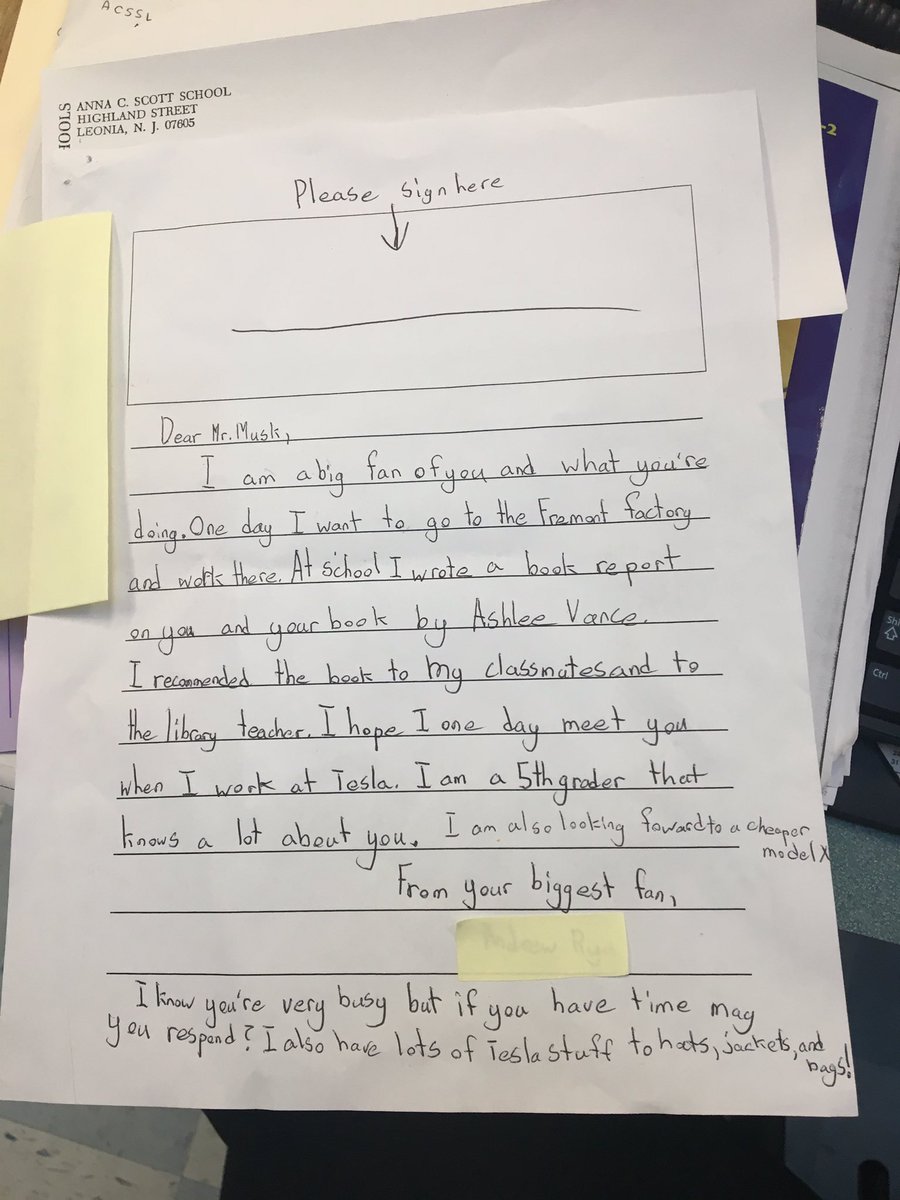 ACSSL
HOOLS
ANNA C. SCOTT SCHOOL
HIGHLAND STREET
LEONIA, N. J. 07605
-2
Please sign here
Dear Mr. Musk,
I am a big fan of you and what you're
doing. One day I want to go to the Fremont factory
and work there. At school I wrote a book report
on you and your book by Ashlee Vance.
I recommended the book to my classmates and to
the library teacher. I hope I one day meet you
when I work at Tesla. I am a 5th grader that
knows a lot about you. I am also looking foward to a cheaper
model X
From your biggest fan,
I know you're very busy but if you have time may
you respond? I also have lots of Tesla stuff to hats, jackets, and
bags!
Ctrl